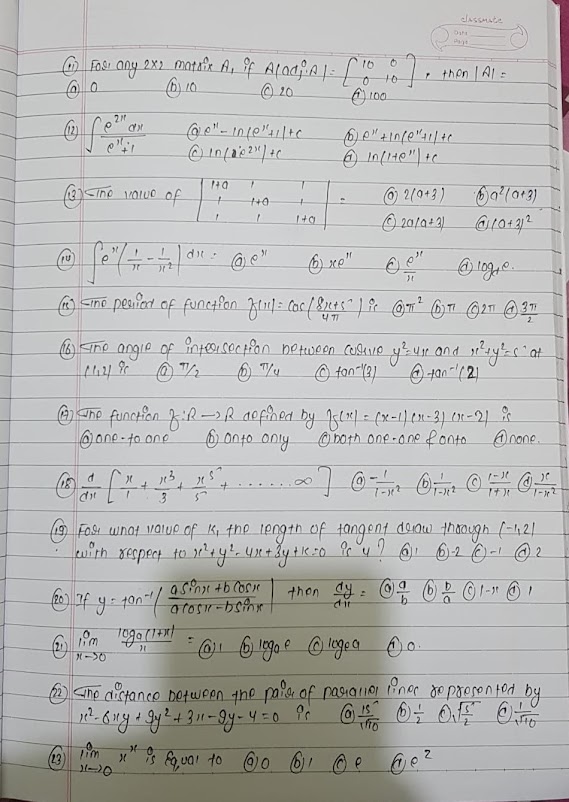 classmate
Date
Page
(11) For any 2x2 matrix A, if A(adj.A) = [10 0 0 10], then |A| =
(a) 0 (b) 10 (c) 20 (d) 100
(12) ∫ e^2x dx / e^x+1 (a) e^x - ln(e^x+1)+c (b) e^x + ln(e^x+1)+c
(c) ln(e^2x)+c (d) ln(1+e^x)+c
(13) The value of |1+a 1 1 1 1+a 1 1 1 1+a| = (a) 2(a+3) (b) a^2(a+3)
(c) 2a(a+3) (d) (a+3)^2
(14) ∫ e^x (1/x - 1/x^2) dx = (a) e^x (b) xe^x (c) e^x/x (d) log e.
(15) The period of function f(x) = cos(8x+5/4π) is (a) π^2 (b) π (c) 2π (d) 3π/2
(16) The angle of intersection between curve y^2=4x and x^2+y^2=5 at
(1,2) is (a) π/2 (b) π/4 (c) tan^-1(3) (d) tan^-1(2)
(17) The function f:R→R defined by f(x) = (x-1)(x-3)(x-2) is
(a) one-to one (b) onto only (c) both one-one & onto (d) none.
(18) d/dx [x/1 + x^3/3 + x^5/5 + ....... ∞] (a) -1/1-x^2 (b) 1/1-x^2 (c) 1-x/1+x (d) x/1-x^2
(19) For what value of K, the length of tangent draw through (-1,2)
with respect to x^2+y^2-4x+3y+k=0 is 4? (a) 1 (b) -2 (c) -1 (d) 2
(20) If y = tan^-1 (asinx+bcosx / acosx-bsinx) then dy/dx = (a) a/b (b) b/a (c) 1-x (d) 1
(21) lim x→0 log a(1+x)/x = (a) 1 (b) log a e (c) log e a (d) 0.
(22) The distance between the pair of parallel lines represented by
x^2-6xy+9y^2+3x-9y-4=0 is (a) 15/√10 (b) 1/2 (c) √5/2 (d) 1/√10
(23) lim x→0 x^x is Equal to (a) 0 (b) 1 (c) e (d) e^2